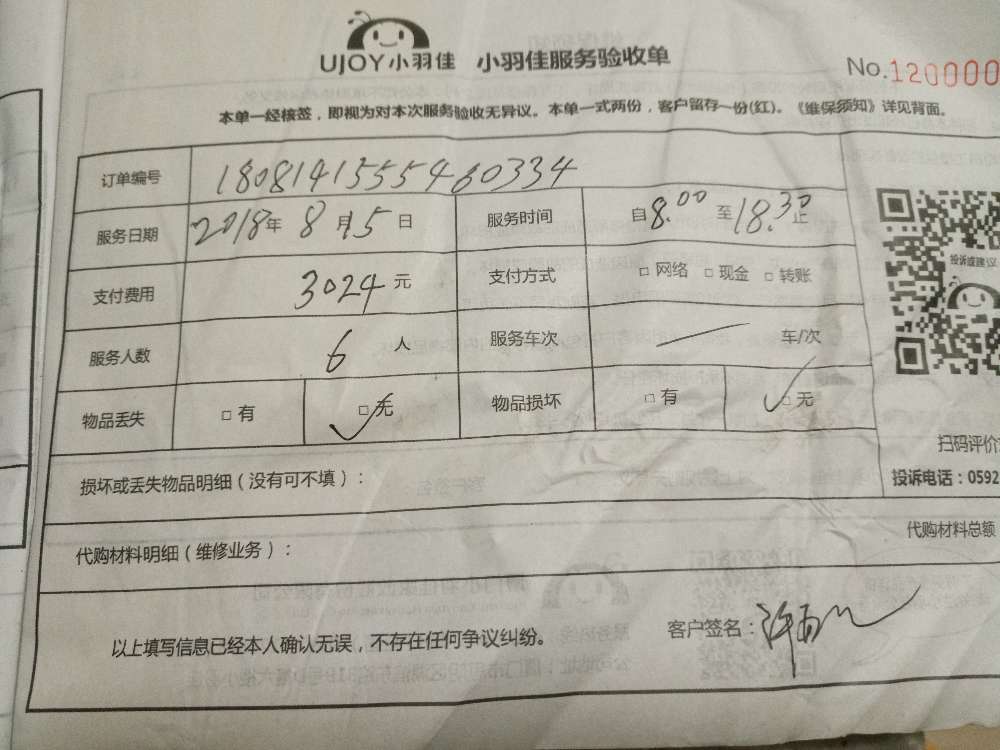 UJOY小羽佳 小羽佳服务验收单
No.120000
本单一经核签，即视为对本次服务验收无异议。本单一式两份，客户留存一份(红)。《维保须知》详见背面。
订单编号 1808141555460334
服务日期 2018年8月5日 服务时间 自8.00至18.30止
投诉或建议
支付费用 3024元 支付方式 □网络 □现金 □转账
服务人数 6人 服务车次 车/次
物品丢失 □有 □无 物品损坏 □有 □无
扫码评价
损坏或丢失物品明细（没有可不填）：
投诉电话：0592
代购材料总额
代购材料明细（维修业务）：
以上填写信息已经本人确认无误，不存在任何争议纠纷。
客户签名：